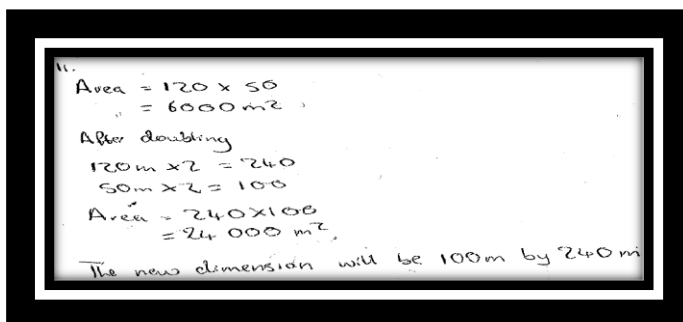 11.
Area = 120 x 50
= 6000 m2
After doubling
120m x2 = 240
50m x2 = 100
Area = 240x100
= 24 000 m2.
The new dimension will be 100m by 240 m